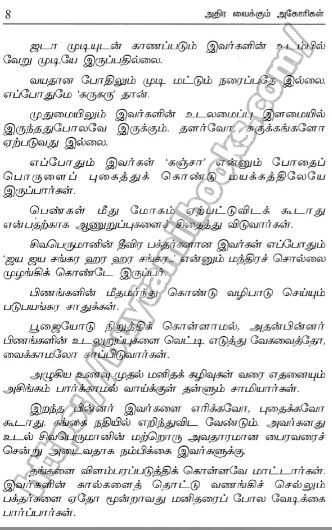 8
அதிர வைக்கும் அகோரிகள்
ஜடா முடியுடன் காணப்படும் இவர்களின் உடம்பில்
வேறு முடியே இருப்பதில்லை.
வயதான போதிலும் முடி மட்டும் நரைப்பதே இல்லை.
எப்போதுமே 'கருகரு' தான்.
முதுமையிலும் இவர்களின் உடலமைப்பு இளமையில்
இருந்ததுபோலவே இருக்கும். தளர்வோ, சுருக்கங்களோ
ஏற்படுவது இல்லை.
எப்போதும் இவர்கள் 'கஞ்சா' என்னும் போதைப்
பொருளைப் புகைத்துக் கொண்டு மயக்கத்திலேயே
இருப்பார்கள்.
பெண்கள் மீது மோகம் ஏற்பட்டுவிடக் கூடாது
என்பதற்காக ஆணுறுப்புகளைச் சிதைத்து விடுவார்கள்.
சிவபெருமானின் தீவிர பக்தர்களான இவர்கள் எப்போதும்
'ஜய ஜய சங்கர ஹர ஹர சங்கர..' என்னும் மந்திரச் சொல்லை
முழங்கிக் கொண்டே இருப்பர்.
பிணங்களின் மீதமர்ந்து கொண்டு வழிபாடு செய்யும்
படுபயங்கர சாதுக்கள்.
பூஜையோடு நிறுத்திக் கொள்ளாமல், அதன்பின்னர்
பிணங்களின் உடலுறுப்புகளை வெட்டி எடுத்து வேகவைத்தோ,
வைக்காமலோ சாப்பிடுவார்கள்.
அழுகிய உணவு முதல் மனிதக் கழிவுகள் வரை எதனையும்
அசிங்கம் பார்க்காமல் வாய்க்குள் தள்ளும் சாமியார்கள்.
இறந்த பின்னர் இவர்களை எரிக்கவோ, புதைக்கவோ
கூடாது. கங்கை நதியில் எறிந்துவிட வேண்டும். அவர்களது
உடல் சிவபெருமானின் மற்றொரு அவதாரமான பைரவரைச்
சென்று அடைவதாக நம்பிக்கை இவர்களுக்கு.
தங்களை விளம்பரப்படுத்திக் கொள்ளவே மாட்டார்கள்.
இவர்களின் கால்களைத் தொட்டு வணங்கிச் செல்லும்
பக்தர்களை ஏதோ மூன்றாவது மனிதரைப் போல வேடிக்கை
பார்ப்பார்கள்.